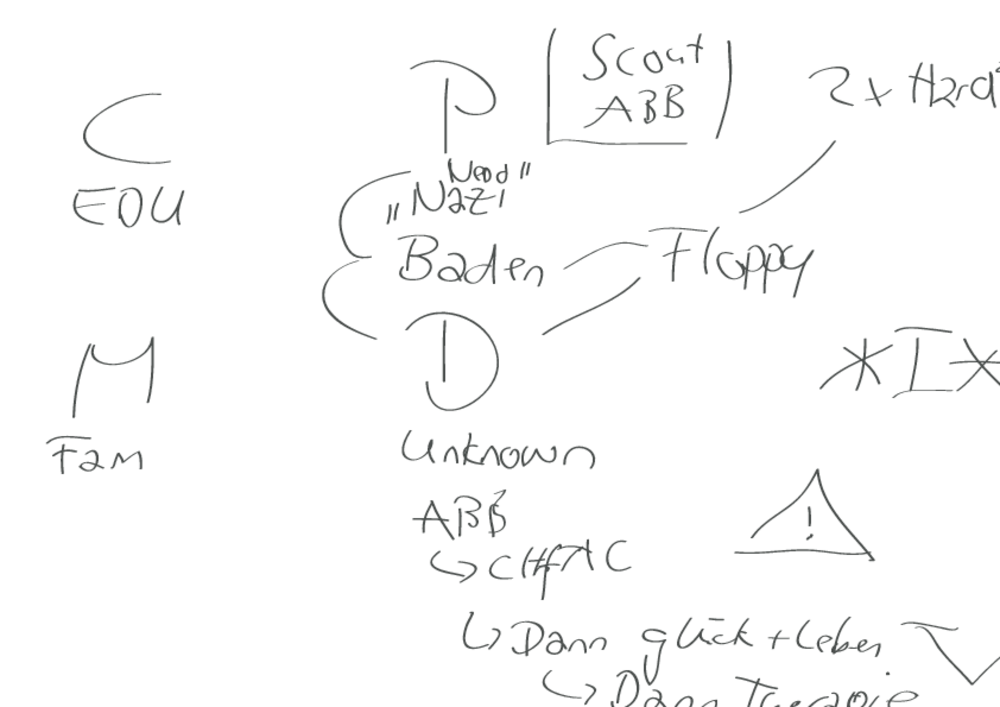 C
EDU
P
Scout
ABB
2x Hard
Nerd"
"Nazi
Baden
Floppy
M
Fam
D
*I*
Unknown
ABB
!
↳ Dann glück + Leben
↳ Dann Therapie